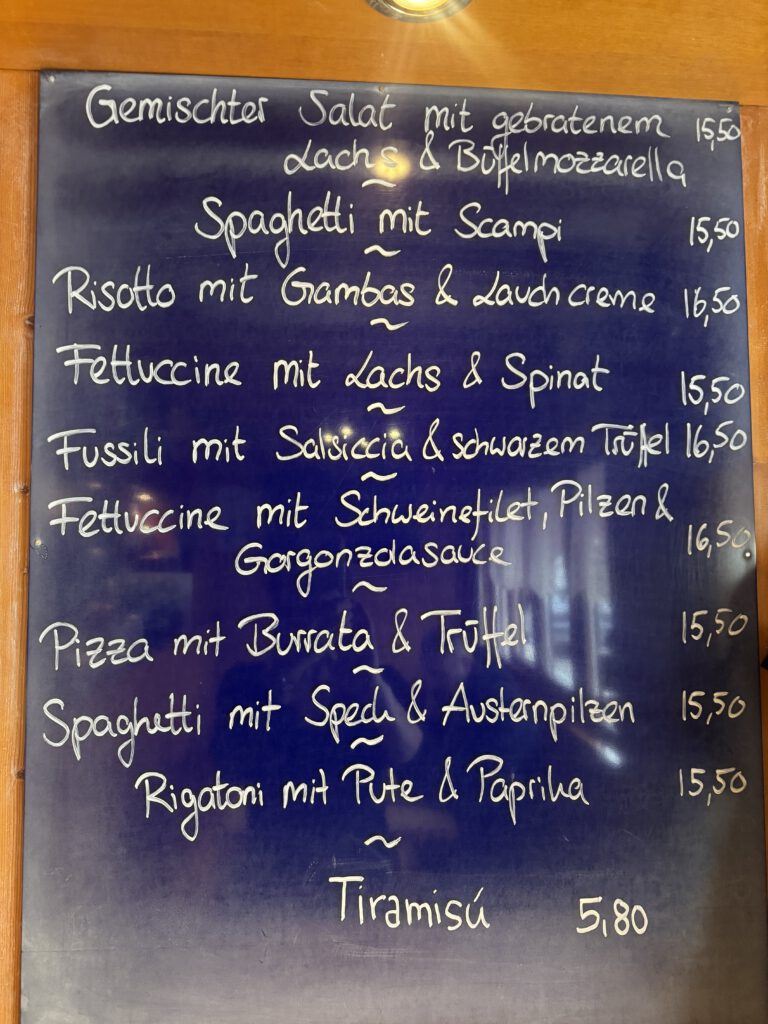 Gemischter Salat mit gebratenem 15,50
Lachs & Büffelmozzarella
~
Spaghetti mit Scampi 15,50
~
Risotto mit Gambas & Lauchcreme 16,50
~
Fettuccine mit Lachs & Spinat 15,50
~
Fussili mit Salsiccia & schwarzem Trüffel 16,50
~
Fettuccine mit Schweinefilet, Pilzen &
Gorgonzolasauce 16,50
~
Pizza mit Burrata & Trüffel 15,50
~
Spaghetti mit Speck & Austernpilzen 15,50
~
Rigatoni mit Pute & Paprika 15,50
~
Tiramisú 5,80